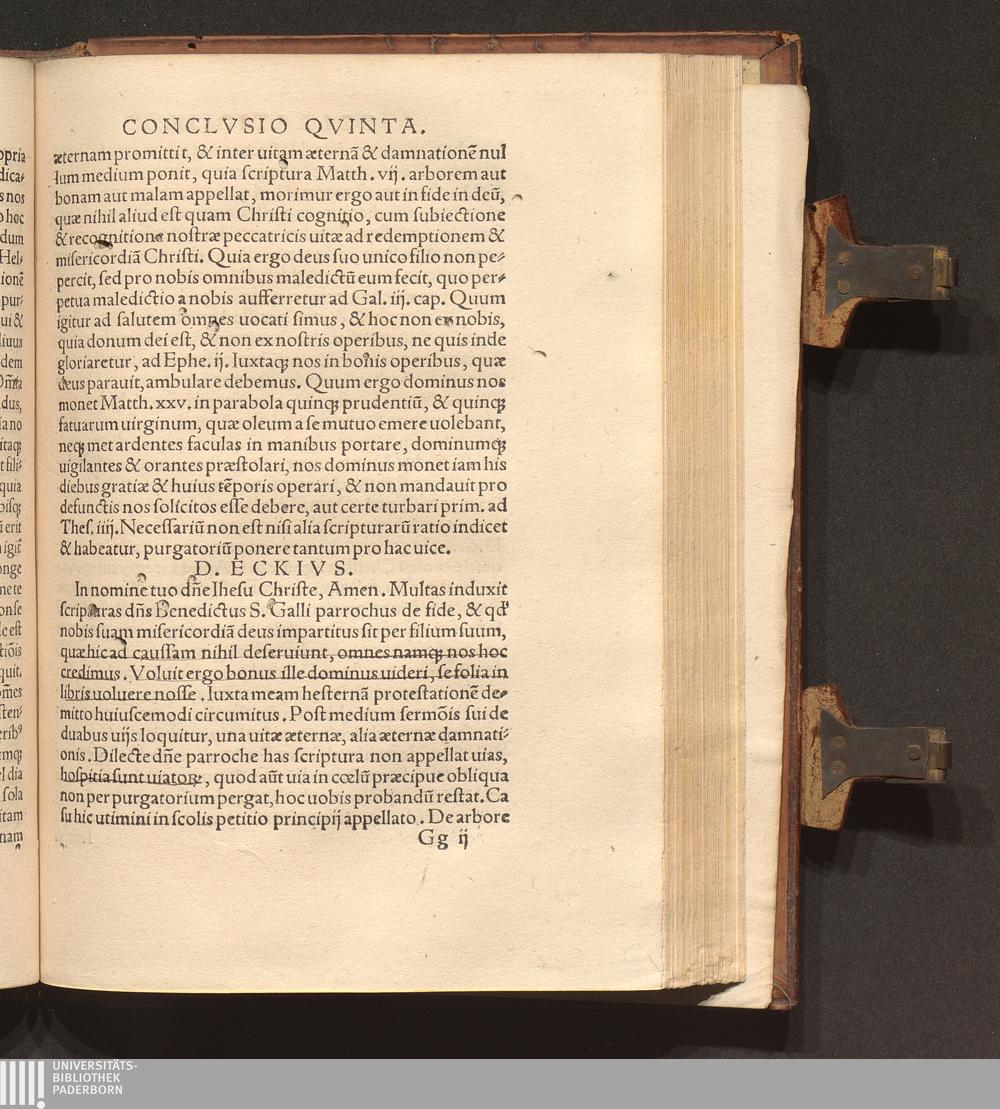 CONCLVSIO QVINTA.
æternam promittit, & inter uitam æternã & damnationẽ nul
lum medium ponit, quia scriptura Matth. vij. arborem aut
bonam aut malam appellat, morimur ergo aut in fide in deũ,
quæ nihil aliud est quam Christi cognitio, cum subiectione
& recognitione nostræ peccatricis uitæ ad redemptionem &
misericordiã Christi. Quia ergo deus suo unico filio non pe⸗
percit, sed pro nobis omnibus maledictũ eum fecit, quo per⸗
petua maledictio a nobis aufferretur ad Gal. iij. cap. Quum
igitur ad salutem omnes uocati simus, & hoc non ex nobis,
quia donum dei est, & non ex nostris operibus, ne quis inde
gloriaretur, ad Ephe. ij. Iuxtaqꝫ nos in bonis operibus, quæ
deus parauit, ambulare debemus. Quum ergo dominus nos
monet Matth. xxv. in parabola quinqꝫ prudentiũ, & quinqꝫ
fatuarum uirginum, quæ oleum a se mutuo emere uolebant,
neqꝫ met ardentes faculas in manibus portare, dominumqꝫ
uigilantes & orantes præstolari, nos dominus monet iam his
diebus gratiæ & huius tẽporis operari, & non mandauit pro
defunctis nos solicitos esse debere, aut certe turbari prim. ad
Thes. iiij. Necessariũ non est nisi alia scripturarũ ratio indicet
& habeatur, purgatoriũ ponere tantum pro hac uice.
D. ECKIVS.
In nomine tuo dñe Ihesu Christe, Amen. Multas induxit
scripturas dñs Benedictus S. Galli parrochus de fide, & qd'
nobis suam misericordiã deus impartitus sit per filium suum,
quæ hic ad caussam nihil deseruiunt, omnes namqꝫ nos hoc
credimus. Voluit ergo bonus ille dominus uideri, se folia in
libris uoluere nosse. Iuxta meam hesternã protestationẽ de⸗
mitto huiuscemodi circumitus. Post medium sermõis sui de
duabus uijs loquitur, una uitæ æternæ, alia æternæ damnati⸗
onis. Dilecte dñe parroche has scriptura non appellat uias,
hospitia sunt uiatorꝝ, quod aũt uia in cœlũ præcipue obliqua
non per purgatorium pergat, hoc uobis probandũ restat. Ca
su hic utimini in scolis petitio principij appellato. De arbore
Gg ij
UNIVERSITÄTS-
BIBLIOTHEK
PADERBORN